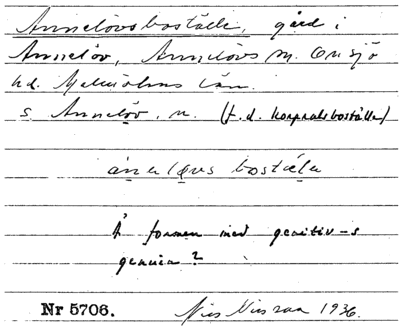 Annelövsboställe, gård i
Annelöv, Annelövs sn. Onsjö
hd. Malmöhus län.
s. Annelöv, n. (f. d. korpralsboställe)
ánəlø̨vs bostɛlə
Är formen med genitiv-s
genuin?
Nr 5706. Nils Nilsson 1936.